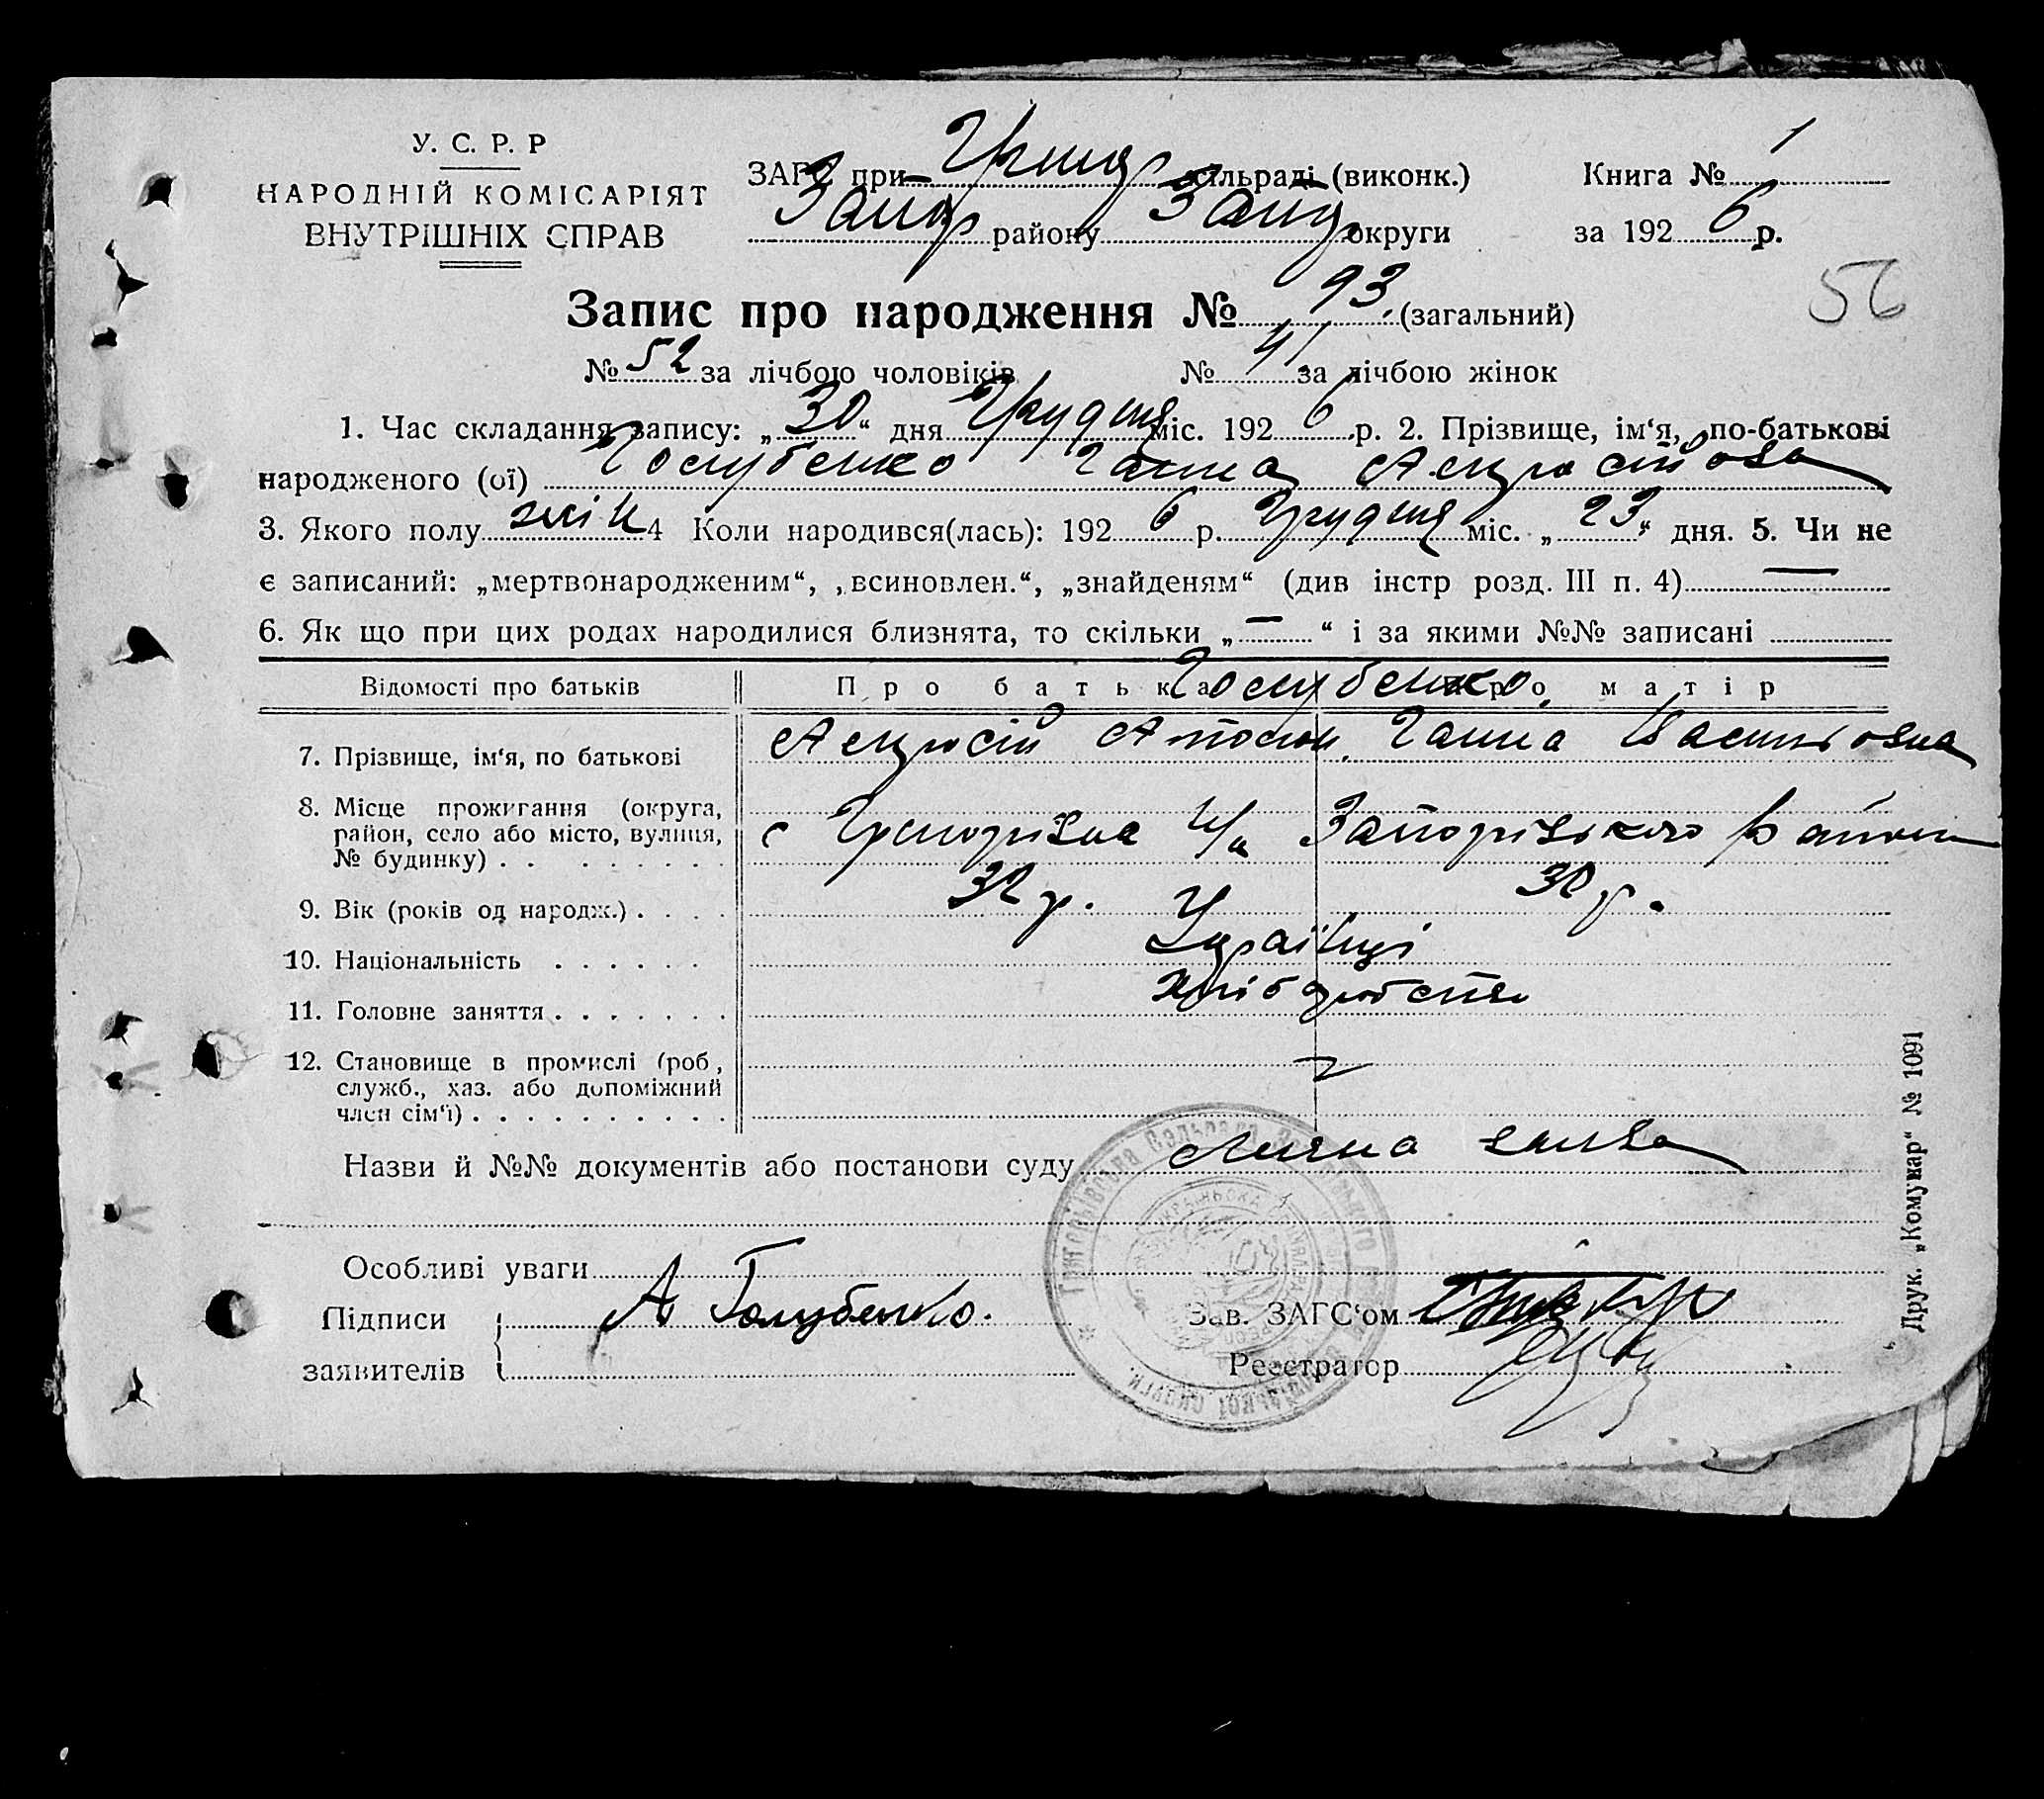 У. С. Р. Р
НАРОДНІЙ КОМІСАРІЯТ
ВНУТРІШНІХ СПРАВ
ЗАГС при Григор сільраді (виконк.)
Запор району Запор округи
Книга № 1
за 1926 р.
56
Запис про народження № 93 (загальний)
№ 52 за лічбою чоловіків № 41 за лічбою жінок
1. Час складання запису: „30“ дня Грудня міс. 1926 р. 2. Прізвище, ім‘я, по-батькові
народженого (ої) Голубенко Ганна
3. Якого полу жін 4 Коли народився(лась): 1926 р. Грудня міс. „23“ дня. 5. Чи не
є записаний: „мертвонародженим“, „всиновлен.“, „знайденям“ (див інстр розд. III п. 4) —
6. Як що при цих родах народилися близнята, то скільки „—“ і за якими №№ записані
Відомості про батьків Про батька Про матір
Голубенко
7. Прізвище, ім‘я, по батькові Ганна Васильовна
8. Місце прожигання (округа,
район, село або місто, вулиця,
№ будинку)
с Григорівка Запорізького Району
9. Вік (років од народж.) 32 р. 30 р.
10. Національність Українці
11. Головне заняття Хліборобство
12. Становище в промислі (роб,
служб., хаз. або допоміжний
член сім‘ї)
Назви й №№ документів або постанови суду Лична заява
Особливі уваги
Підписи
заявителів
А Голубенко.
Зав. ЗАГС‘ом
Реєстратор
Друк. „Комунар“ № 1091